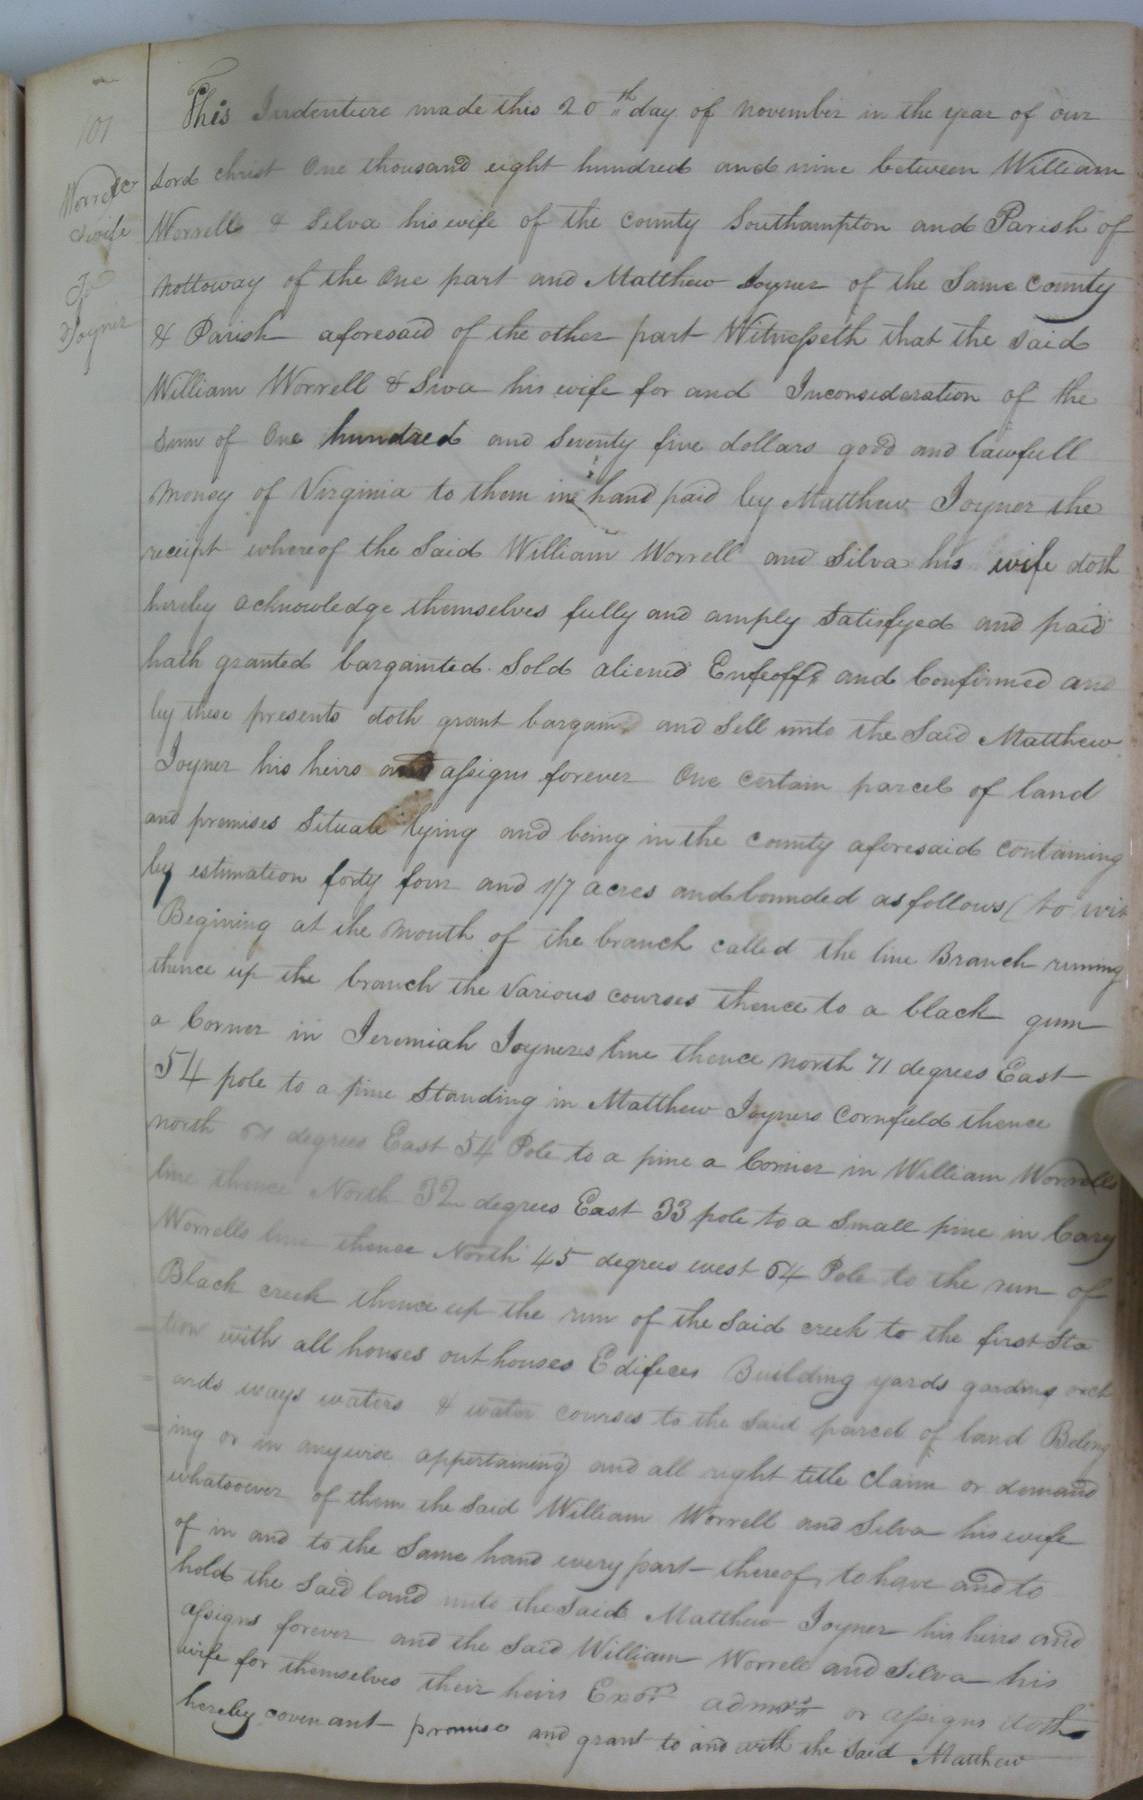 101
Worrell &
wife
To
Joyner
This Indenture made this 20th day of november in the year of our
Lord christ One thousand eight hundred and nine between William
Worrell & Silva his wife of the County Southampton and Parish of
Nottoway of the One part and Matthew Joyner of the Same County
& Parish aforesaid of the other part Witnesseth that the said
William Worrell & Siva his wife for and Inconsideration of the
Sum of One hundred and Seventy five dollars good and lawfull
money of Virginia to them in hand paid by Matthew Joyner the
receipt whereof the Said William Worrell and Silva his wife doth
hereby acknowledge themselves fully and amply Satisfyed and paid
hath granted bargainted Sold aliened Enfeoffd and Confirmed and
by these presents doth grant bargain and Sell unto the Said Matthew
Joyner his heirs and assigns forever One certain parcel of land
and premises Situate lying and being in the County aforesaid containing
by estimation forty four and 1/7 acres and bounded as follows (to wit
Begining at the mouth of the branch called the line Branch runing
thence up the branch the Various courses thence to a black gum
a Corner in Jeremiah Joyners line thence north 71 degrees East
54 pole to a pine Standing in Matthew Joyners Cornfield thence
north 61 degrees East 54 Pole to a pine a Corner in William Worrells
line thence North 32 degrees East 33 pole to a Small pine in Cary
Worrells line thence North 45 degrees west 64 Pole to the run of
Black creek thence up the run of the Said creek to the first Sta
tion with all houses out houses Edifices Building yards gardins orch
ards ways waters & water courses to the Said parcel of land Belong
ing or in anywise appertaining and all right title Claim or demand
whatsoever of them the Said William Worrell and Silva his wife
of in and to the Same hand every part thereof, to have and to
hold the Said land unto the Said Matthew Joyner his heirs and
assigns forever and the Said William Worrell and Silva his
wife for themselves their heirs Exors admrs or assigns doth
hereby covenant promise and grant to and with the Said Matthew